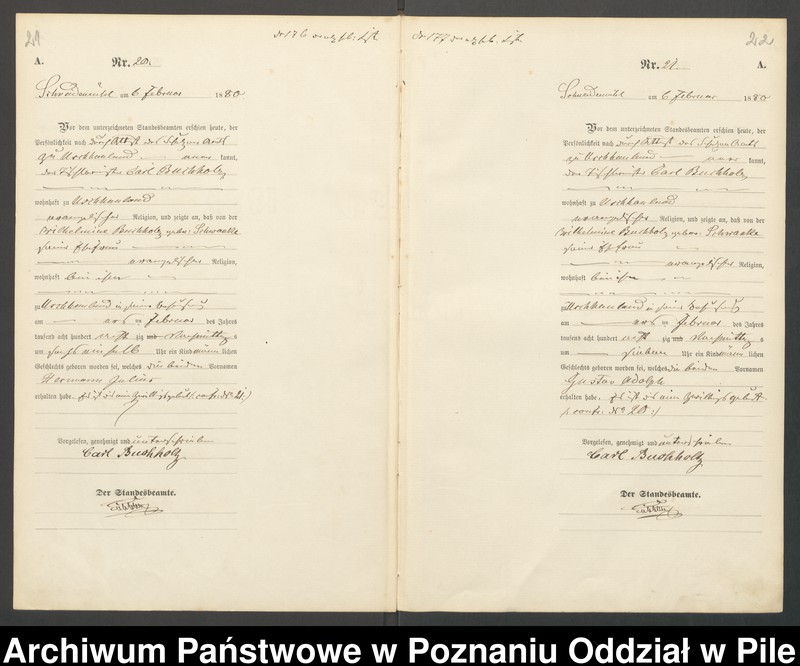 21
A.
Nr. 20.
Schneidemühl am 6 Februar 1880
Vor dem unterzeichneten Standesbeamten erschien heute, der
Persönlichkeit nach durch Attest des Schulzen Amts
zu Usch Hauland kannt,
der Carl Buchholz
wohnhaft zu Usch Hauland
evangelischer Religion, und zeigte an, daß von der
Wilhelmine Buchholz geborne Schwanke
seine Ehefrau
evangelischer Religion,
wohnhaft bei ihm
zu Usch Hauland in seiner Behausung
am ten Februar des Jahres
tausend acht hundert acht zig Nachmittags
um sechs einhalb Uhr ein Kind männlichen
Geschlechts geboren worden sei, welches die beiden Vornamen
Hermann Julius
erhalten habe. Es ist dies eine Zwillingsgeburt (confr. No 21.)
Vorgelesen, genehmigt und unterschrieben
Carl Buchholz
Der Standesbeamte.
22
Nr. 21.
A.
Schneidemühl am 6 Februar 1880
Vor dem unterzeichneten Standesbeamten erschien heute, der
Persönlichkeit nach durch Attest des Schulzen Amts
zu Usch Hauland kannt,
der Carl Buchholz
wohnhaft zu Usch Hauland
evangelischer Religion, und zeigte an, daß von der
Wilhelmine Buchholz geborne Schwanke
seine Ehefrau
evangelischer Religion,
wohnhaft bei ihm
zu Usch Hauland in seiner Behausung
am ten Februar des Jahres
tausend acht hundert acht zig Nachmittags
um sieben Uhr ein Kind männlichen
Geschlechts geboren worden sei, welches die beiden Vornamen
Gustav Adolph
erhalten habe. Es ist dies eine Zwillingsgeburt
(confr. No 20.)
Vorgelesen, genehmigt und unterschrieben
Carl Buchholz
Der Standesbeamte.
Archiwum Państwowe w Poznaniu Oddział w Pile